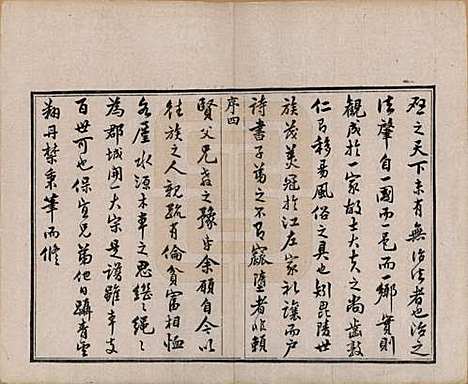 歴之天下未有無治法者也治之
法肇自一國而一邑而一鄉實則
觀成於一家故士大夫之尚齒敦
仁有移易風俗之具也矧毘陵世
族蔑美冠於江左家禮讓而戶
詩書子弟之不習窳墮者非賴
序四
賢父兄
之豫
余願自今以
往族之人親疏有倫貧富相恤
水源木本之思繩繩
為郡城開一大宗是譜雖本支
百世可也保宜兄弟他日躡青雲
翔丹禁秉筆而修